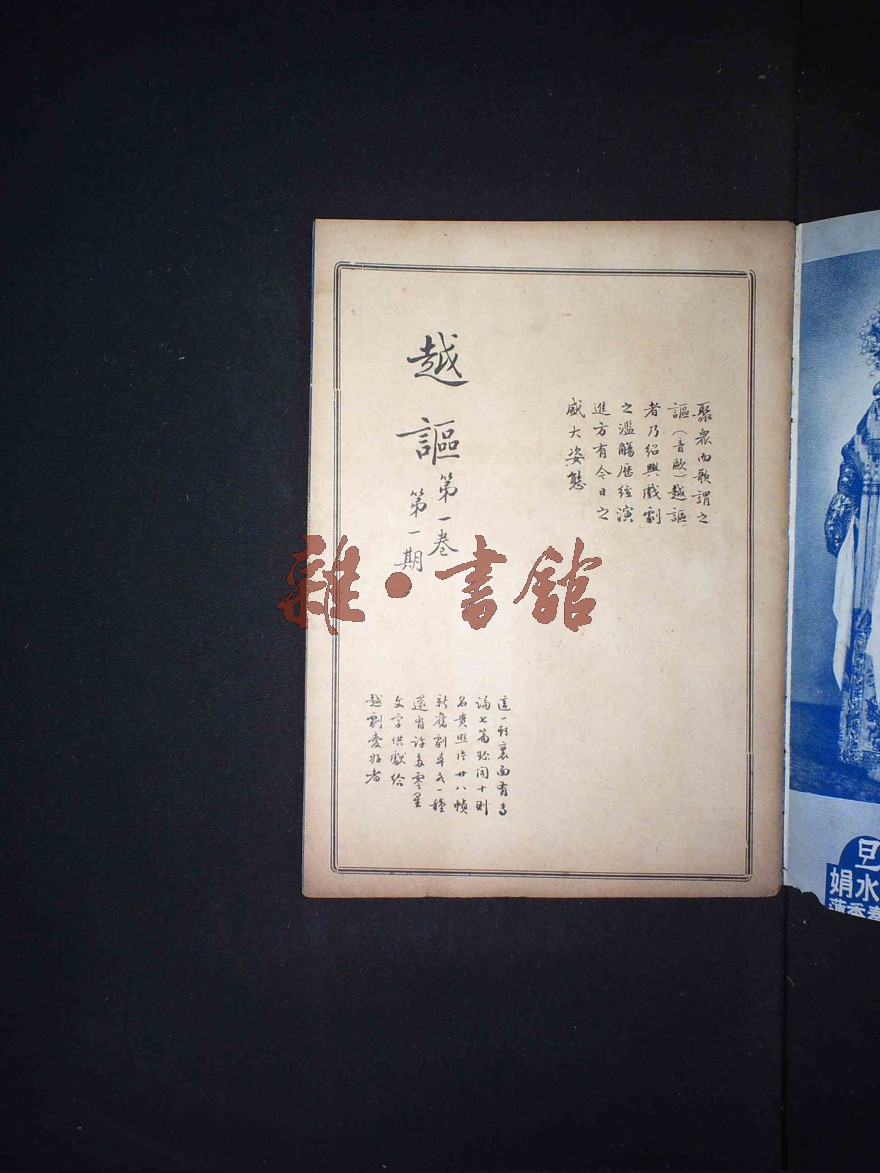 聚衆而歌謂之
謳（音歐）越謳
者乃紹興戲劇
之濫觴歷經演
進方有今日之
盛大姿態
越謳
第一卷
第一期
這一期裏面有專
論七篇珍聞十則
名貴照片廿八幀
新舊劇本各一種
還有許多零星
文字供獻給
越劇愛好者
雜·書館
旦
水娟